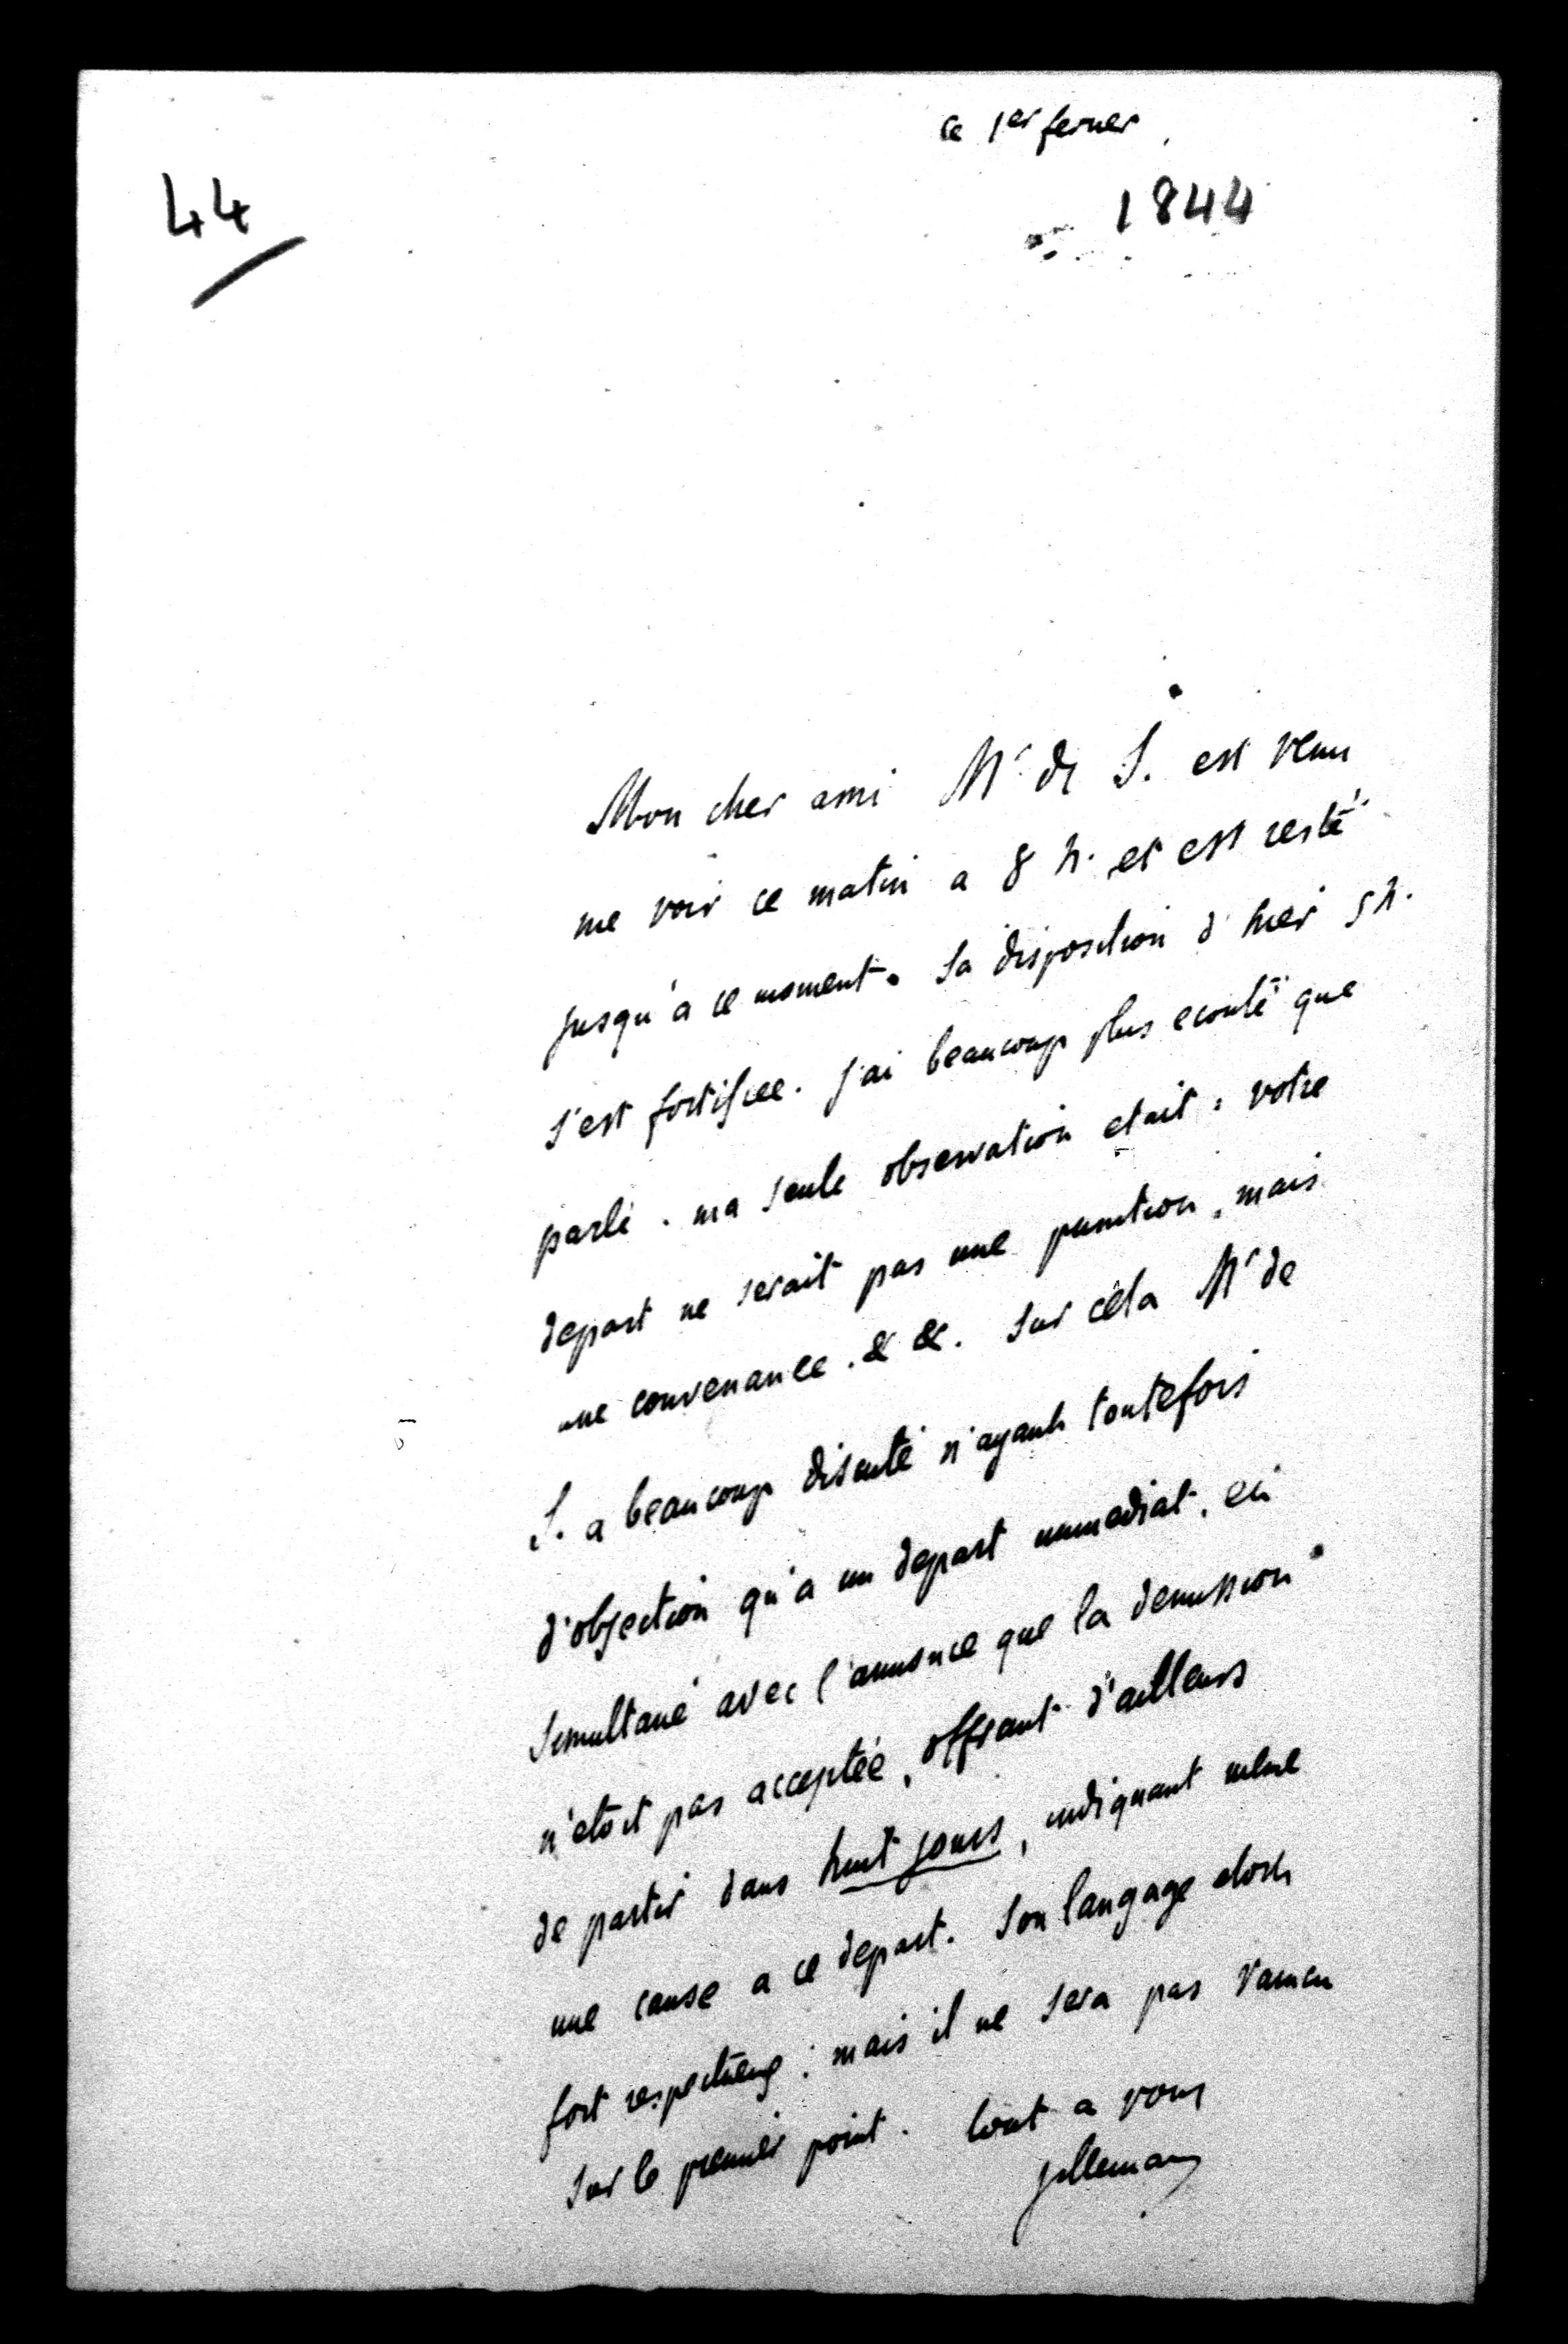 ce 1er fevrier
44
1844
Mon cher ami Mr de S. est venu
me voir ce matin a 8 h. et est resté
jusqu'à ce moment. Sa disposition d'hier 5 h.
s'est fortifiee. J'ai beaucoup plus ecouté que
parlé. ma seule observation etait : votre
depart ne serait pas une punition, mais
une convenance. & &. Sur cela Mr de
S. a beaucoup discuté n'ayant toutefois
d'objection qu'a un depart immediat, et
simultané avec l'annonce que la demission
n'etoit pas acceptée, offrant d'ailleurs
de partir dans huit jours, indiquant meme
une cause a ce depart. Son langage etoit
fort respectueux : mais il ne sera pas vaincu
sur le premier point. tout a vous
Villemain